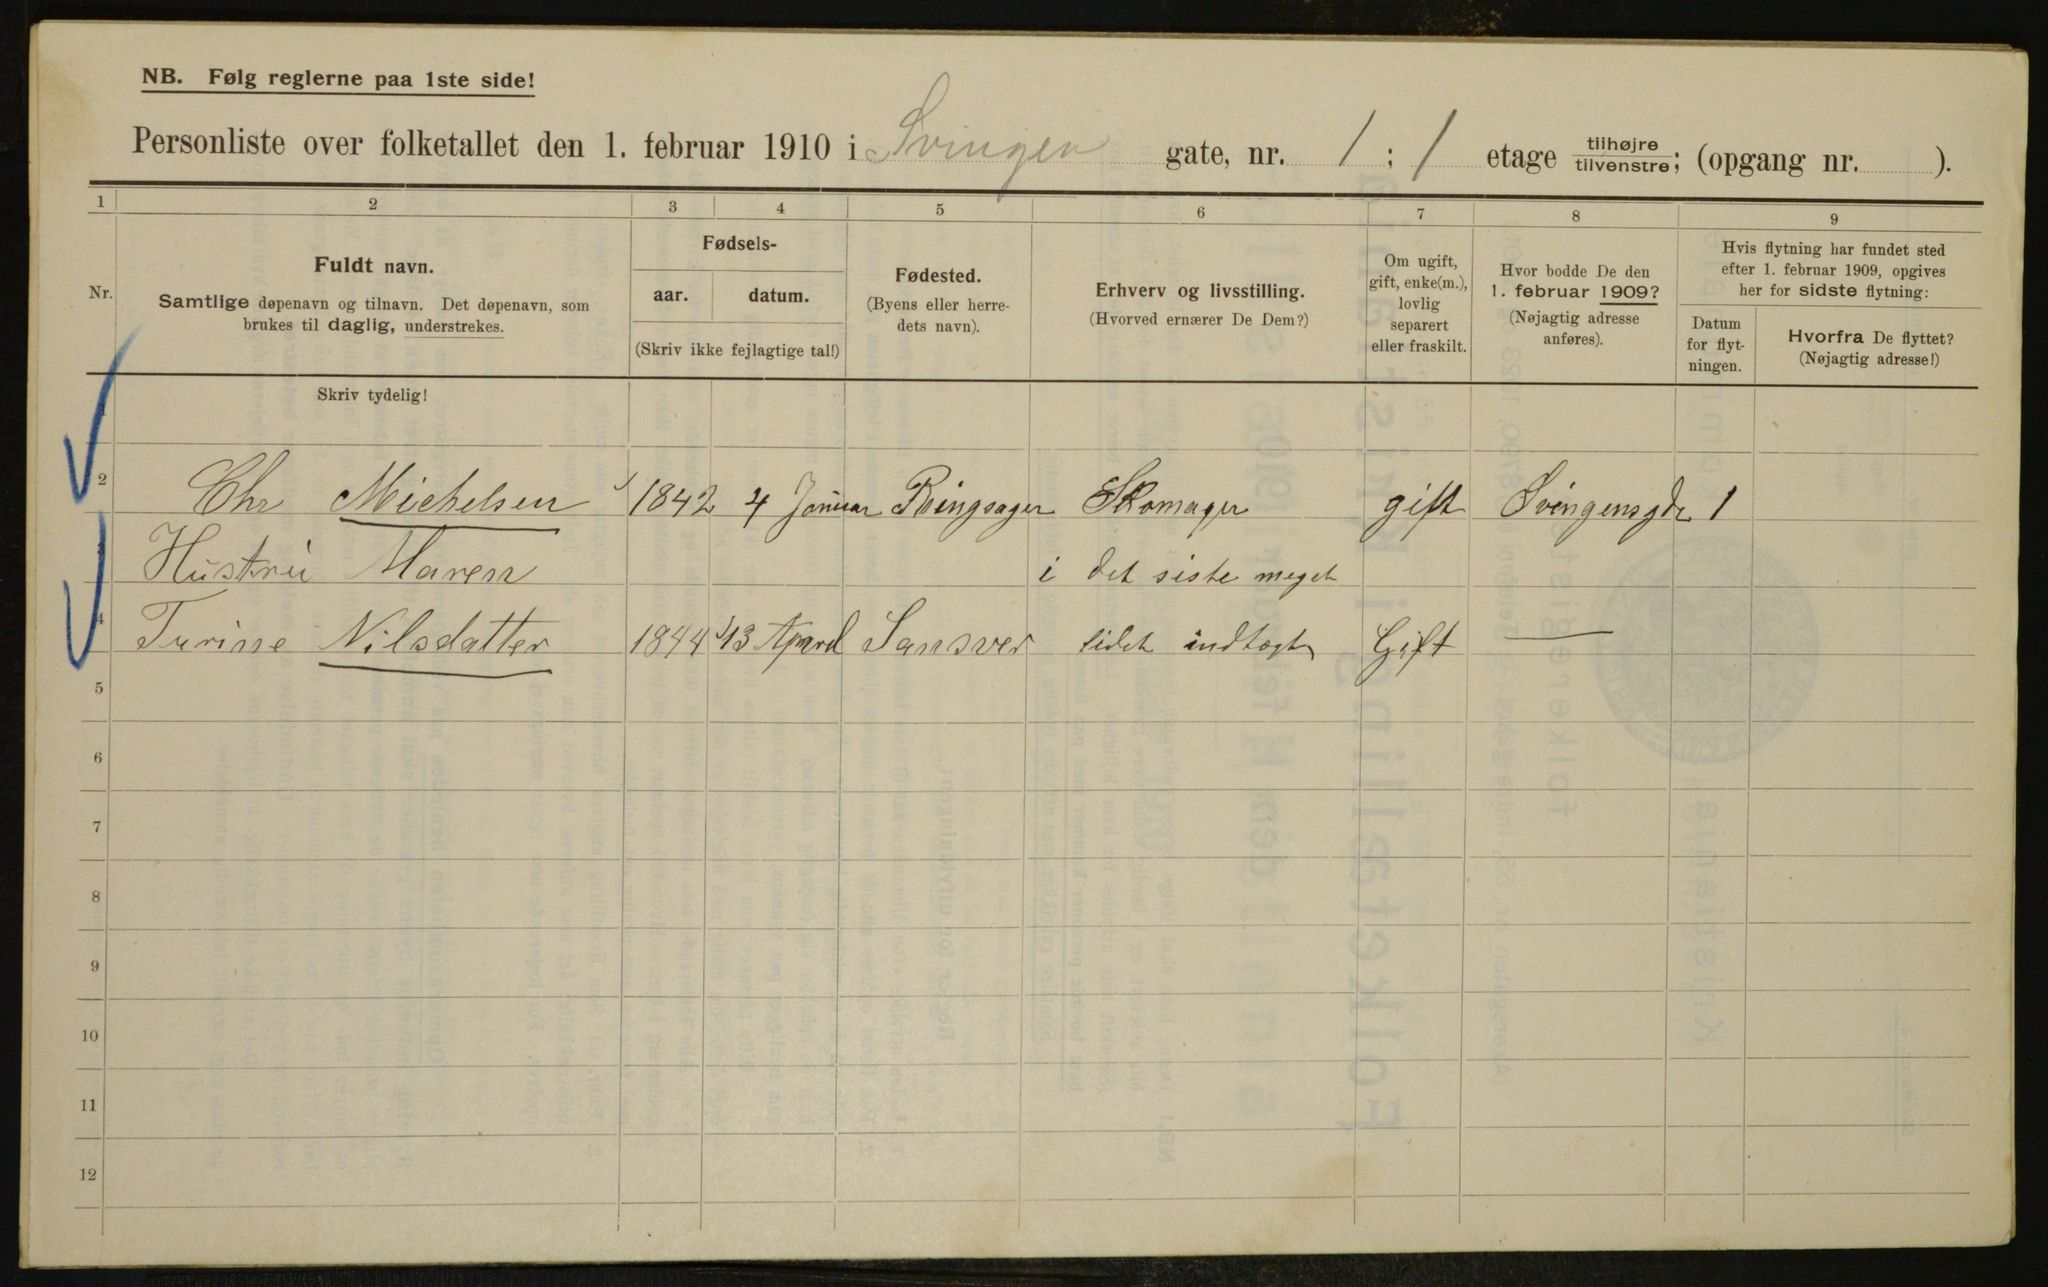 NB. Følg reglerne paa 1ste side!
Personliste over folketallet den 1. februar 1910 i Svingen gate, nr. 1 ; 1 etage tilhøjre/tilvenstre; (opgang nr. ).
1 2 3 4 5 6 7 8 9
Nr.
Fuldt navn.
Samtlige døpenavn og tilnavn. Det døpenavn, som
brukes til daglig, understrekes.
Fødsels-
aar. datum.
(Skriv ikke fejlagtige tal!)
Fødested.
(Byens eller herre-
dets navn).
Erhverv og livsstilling.
(Hvorved ernærer De Dem?)
Om ugift,
gift, enke(m.),
lovlig
separert
eller fraskilt.
Hvor bodde De den
1. februar 1909?
(Nøjagtig adresse
anføres).
Hvis flytning har fundet sted
efter 1. februar 1909, opgives
her for sidste flytning:
Datum
for flyt-
ningen.
Hvorfra De flyttet?
(Nøjagtig adresse!)
Skriv tydelig!
1
2 Chr Michelsen 1842 4 Januar Ringsager Skomager gift Svingensgde 1
3 Hustru Maren i det siste meget
4 Turine Nilsdatter 1844 13 April Sansver lidet indtægt Gift —
5
6
7
8
9
10
11
12